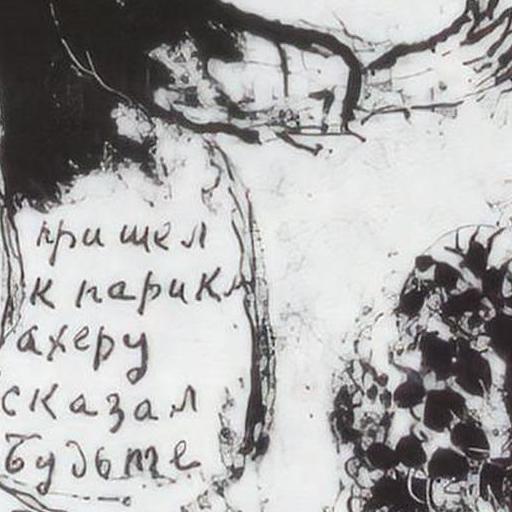 пришел
к парикм
ахеру
сказал
будьте